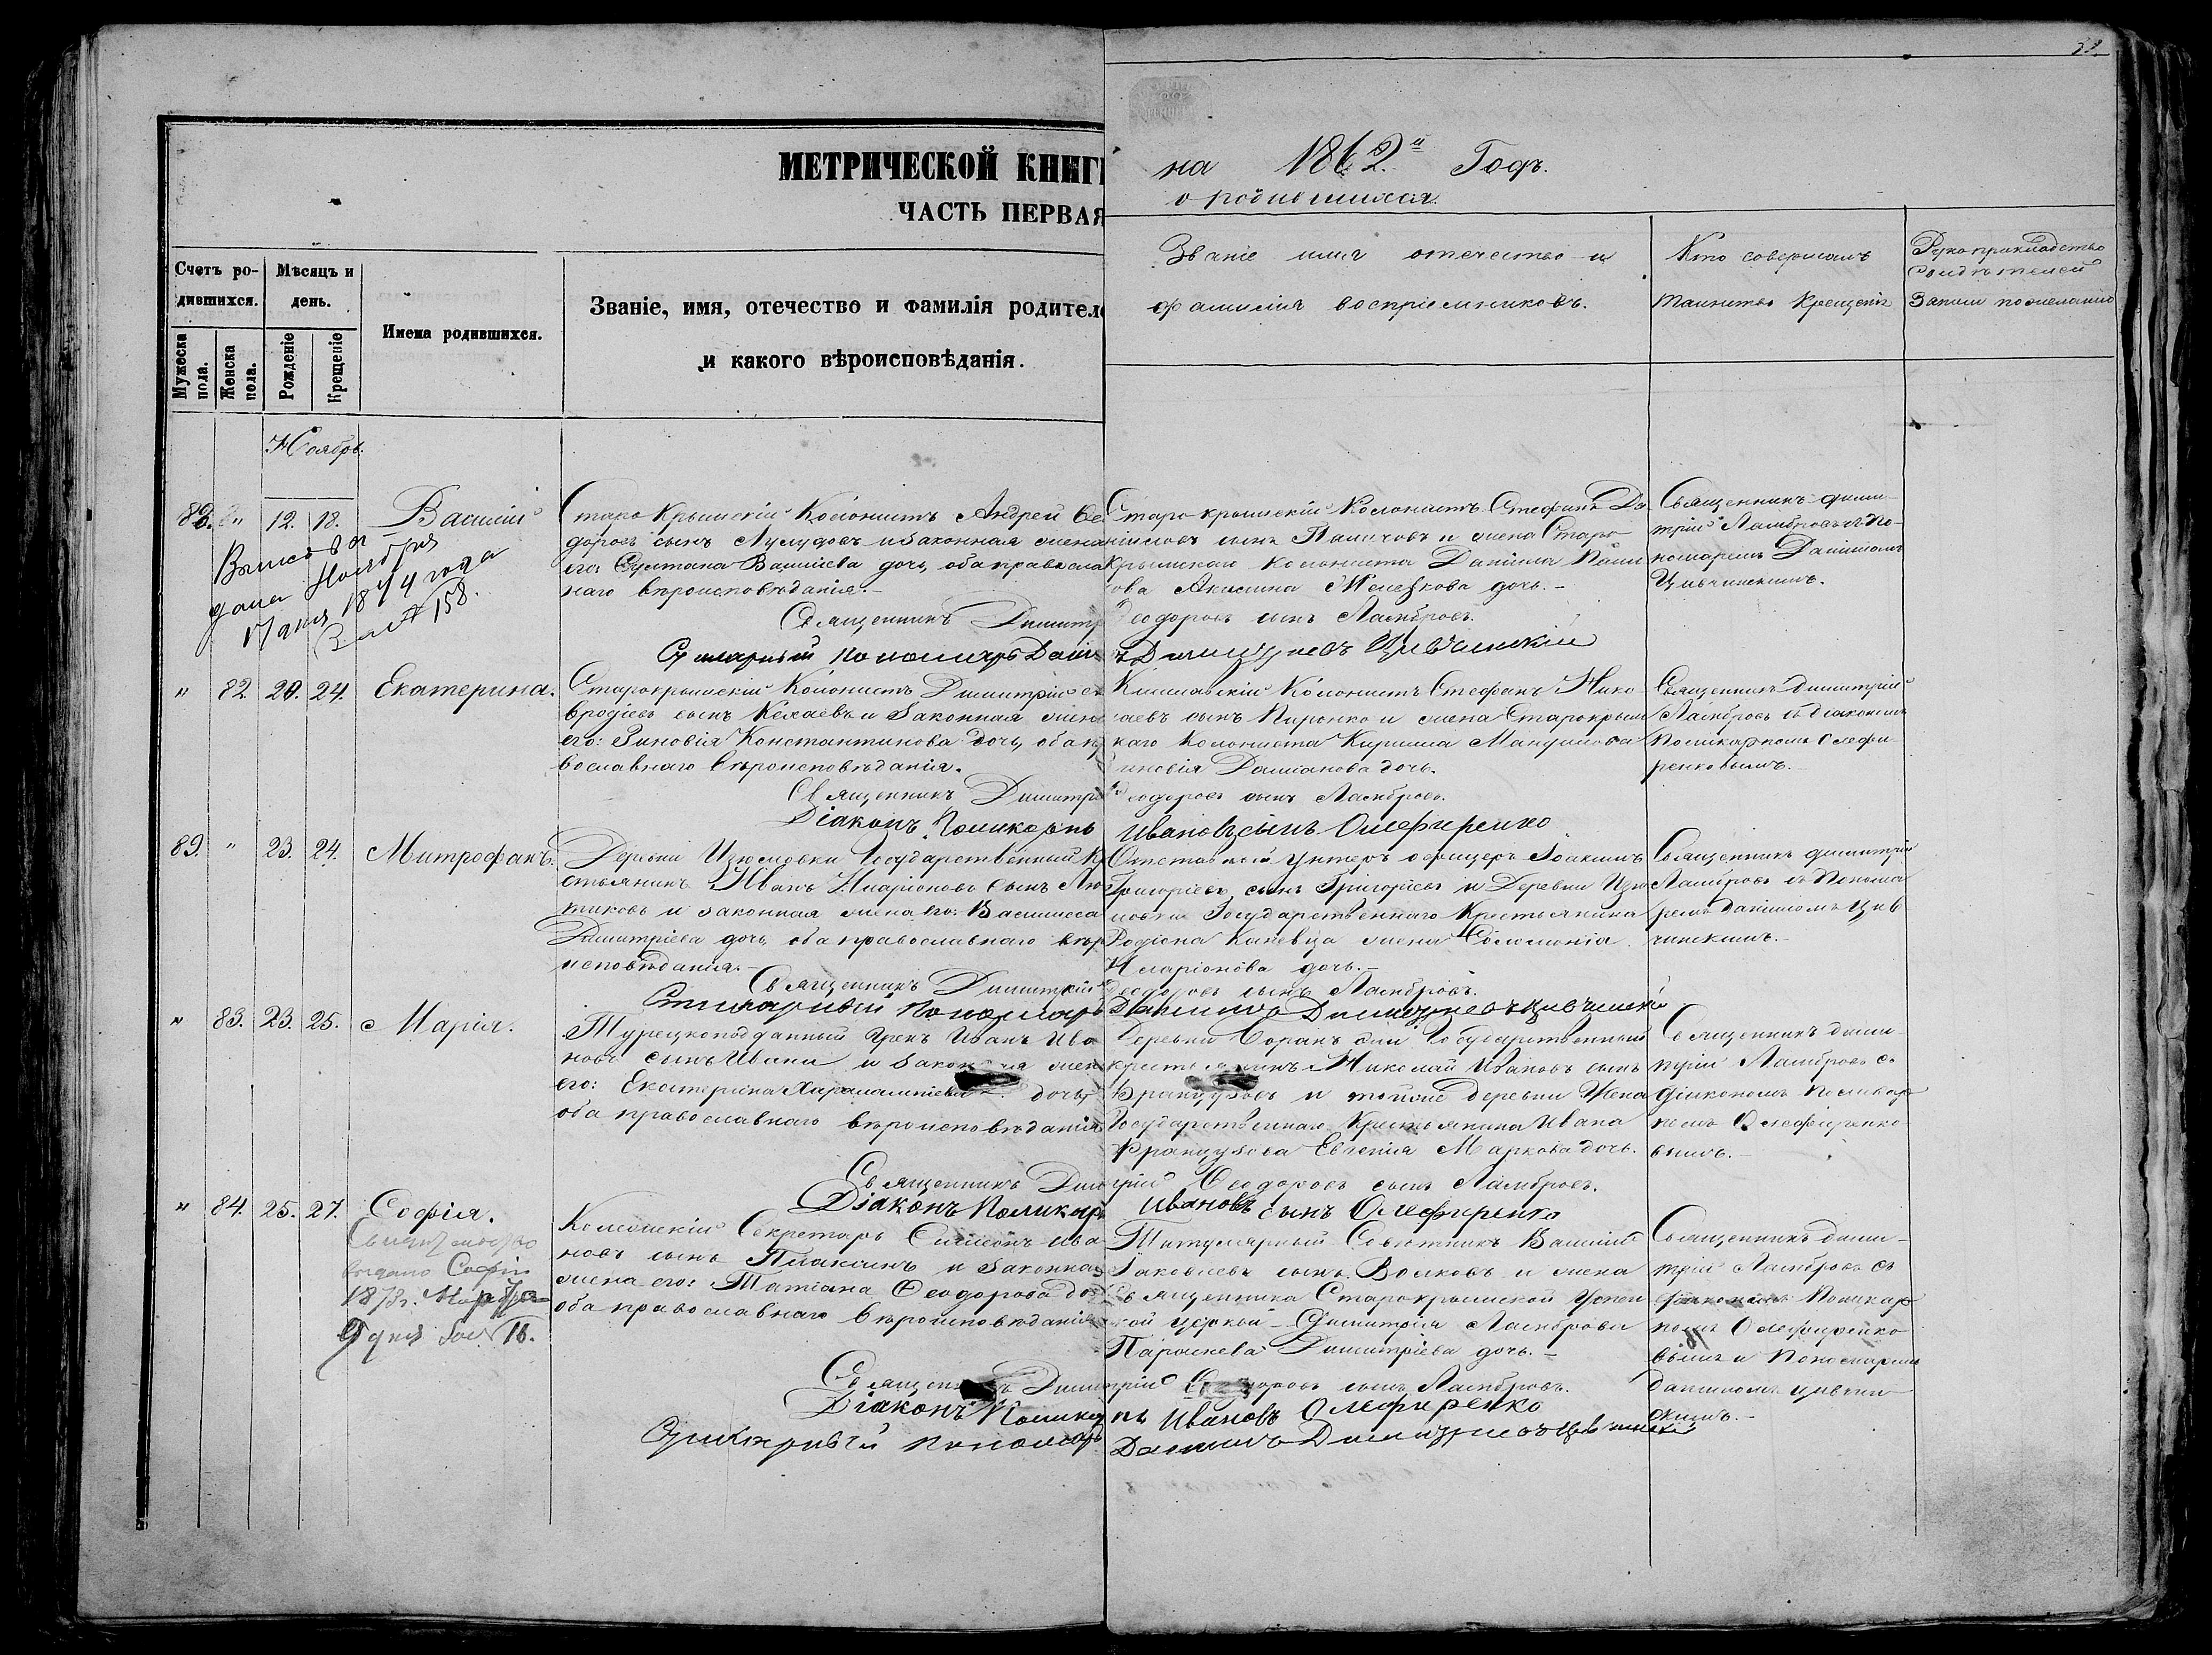 МЕТРИЧЕСКОЙ КНИГИ
ЧАСТЬ ПЕРВАЯ
на 1862.й Годъ.
о родившихся.
Счетъ ро-
дившихся.
Мѣсяцъ и
день.
Имена родившихся.
Званіе, имя, отечество и фамилія родител
и какого вѣроисповѣданія.
Мужеска пола.
Женска пола.
Рожденіе
Крещеніе
Званіе имя отечество и
фамилія воспріемниковъ.
Кто совершалъ
таинство Крещенія
Рукоприкладство
свидѣтелей
записи по желанію
Ноябрь.
88. " 12. 18. Василій
Старо Крымскій Колонистъ Андрей Ѳе
доровъ сынъ и законная жена
его: Султана Василіева дочь, оба правосла
наго вѣроисповѣданія.
Священникъ Димитр
Пономарь Даніи
Выпись
дана Ноября
17 дня 1874 года
№ 158.
Старо крымскій Колонистъ Стефанъ Да
ніиловъ сынъ и жена Старо
крымскаго колониста Даніила
Акилина дочь.
Ѳеодоровъ сынъ Ламбровъ.
Димитріевъ Цивчинскій
Священникъ Дими-
трій Ламбровъ съ По-
номаремъ Даніиломъ
Цивчинскимъ.
" 82. 20. 24. Екатерина.
Старокрымскій Колонистъ Димитрій
сынъ Келаевъ и законная жена
его: Зиновія Константинова дочь, оба пр
вославнаго вѣроисповѣданія.
Священникъ Димитрі
Діаконъ Поликарпъ
Колонистъ Стефанъ Нико
лаевъ сынъ Пиронко и жена Старокрым
каго колониста Кирилла
Даміанова дочь.
Ѳеодоровъ сынъ Ламбровъ.
Ивановъ сынъ Олефиренко
Священникъ Димитрій
Ламбровъ съ діакономъ
Поликарпомъ Олефи-
ренковымъ.
89. " 23. 24. Митрофанъ.
Деревни Изюмовки Государственный Кр
стьянинъ Иванъ Иларіоновъ сынъ
и законная жена его: Василисса
Димитріева дочь, оба православнаго вѣр
исповѣданія.
Священникъ Димитрій
Пономарь
Отставной унтеръ офицеръ Іоакимъ
Григоріевъ сынъ Григорьевъ и Деревни Изю
мовки Государственнаго Крестьянина
Родіона Каневца жена Соломонія
Иларіонова дочь.
Ѳеодоровъ сынъ Ламбровъ.
Даніилъ Димитріевъ Цивчинскій
Священникъ Димитрій
Ламбровъ съ Понома
ремъ Даніиломъ Цив
чинскимъ.
" 83. 23. 25. Марія.
Турецкоподданный Грекъ Иванъ Ива
новъ сынъ Ивани и законная жен
его: Екатерина Харалампіева дочь,
оба православнаго вѣроисповѣданія
Священникъ Дим
Діаконъ Поликарп
Деревни Государственный
крестьянинъ Николай Ивановъ сынъ
Французовъ и тойже деревни Жена
Государственнаго Крестьянина Ивана
Французова Евгенія Маркова дочь.
трій Ѳеодоровъ сынъ Ламбровъ.
Ивановъ сынъ Олефиренко
Священникъ Дими-
трій Ламбровъ съ
діакономъ Поликар
помъ Олефиренко-
вымъ.
" 84. 25. 27. Софія.
Свидѣтельство
выдано Софіи
1878г. Ноября
9 дня № 16.
Коллежскій Секретарь Симеонъ Ива
новъ сынъ Плаксинъ и законная
жена его: Татіана Ѳеодорова до
оба православнаго вѣроисповѣданія
Священникъ Дими
Діаконъ Поликар
Пономарь
Титулярный Совѣтникъ Василій
Іаковлевъ сынъ Волковъ и жена
Священника Старокрымской Успен
кой церкви Димитрія Ламброва
Параскева Димитріева дочь.
трій Ѳеодоровъ сынъ Ламбровъ.
пъ Ивановъ Олефиренко
Даніилъ Димитріевъ Цивчинскій
Священникъ Дими-
трій Ламбровъ съ
діакономъ Поликар
помъ Олефиренко
вымъ и Пономаремъ
Даніиломъ Цивчин
скимъ.